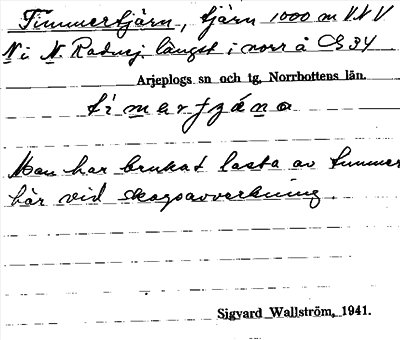 Timmertjärn, tjärn 1000 m V.N.V
N i N. Radnej längst i norr å G 34
Arjeplogs sn och tg, Norrbottens län.
Man har brukat lasta av timmer
här vid skogsavverkning.
Sigvard Wallström, 1941.